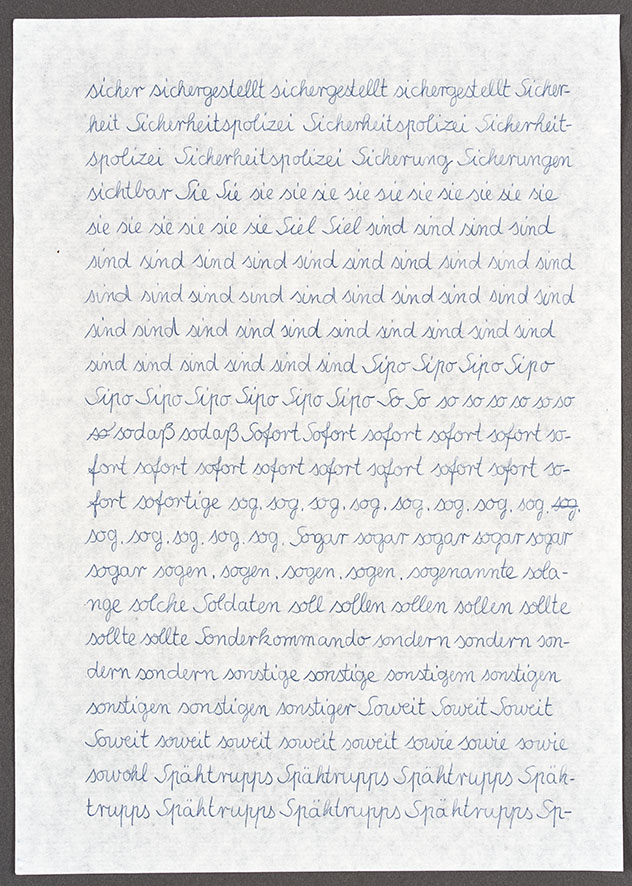 sicher sichergestellt sichergestellt sichergestellt Sicher-
heit Sicherheitspolizei Sicherheitspolizei Sicherheit-
spolizei Sicherheitspolizei Sicherung Sicherungen
sichtbar Sie Sie sie sie sie sie sie sie sie sie sie sie
sie sie sie sie sie sie Siel Siel sind sind sind sind
sind sind sind sind sind sind sind sind sind sind
sind sind sind sind sind sind sind sind sind sind
sind sind sind sind sind sind sind sind sind
sind sind sind sind sind sind Sipo Sipo Sipo Sipo
Sipo Sipo Sipo Sipo Sipo Sipo So So so so so so so so
so sodaß sodaß Sofort Sofort sofort sofort sofort so-
fort sofort sofort sofort sofort sofort sofort sofort so-
fort sofortige sog. sog. sog. sog. sog. sog. sog. sog. sog.
sog. sog. sog. sog. sog. Sogar sogar sogar sogar sogar
sogar sogen. sogen. sogen. sogen. sogenannte sola-
nge solche Soldaten soll sollen sollen sollen sollte
sollte sollte Sonderkommando sondern sondern son-
dern sondern sonstige sonstige sonstigem sonstigen
sonstigen sonstigen sonstiger Soweit Soweit Soweit
Soweit soweit soweit soweit soweit sowie sowie sowie
sowohl Spähtrupps Spähtrupps Spähtrupps Späh-
trupps Spähtrupps Spähtrupps Spähtrupps Sp-